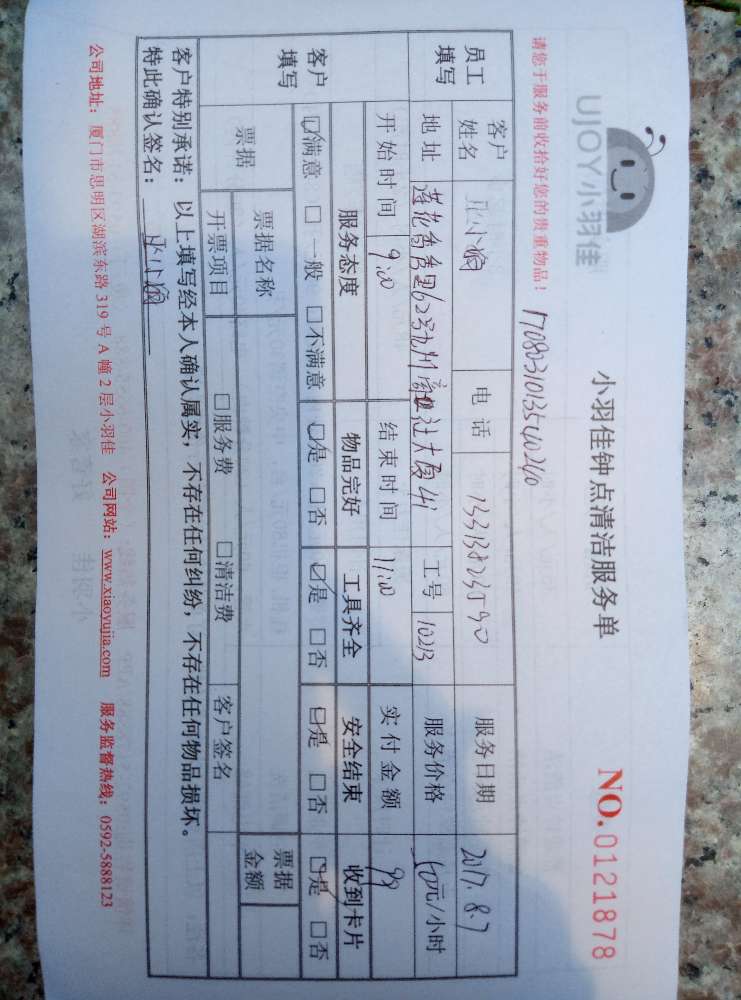 UJOY小羽佳
小羽佳钟点清洁服务单
NO.0121878
请您于服务前收拾好您的贵重物品！
员工填写 客户姓名 小 电话 服务日期 2017.8.7
地址 莲花香秀里62号九州 社大厦 工号 10213 服务价格 元/小时
开始时间 9:00 结束时间 11:00 实付金额 99
客户填写 服务态度 物品完好 工具齐全 安全结束 收到卡片
☑满意 □一般 □不满意 ☑是 □否 ☑是 □否 ☑是 □否 ☑是 □否
票据 票据名称 票据金额
开票项目 □服务费 □清洁费 客户签名
客户特别承诺：以上填写经本人确认属实，不存在任何纠纷，不存在任何物品损坏。
特此确认签名： 小
公司地址：厦门市思明区湖滨东路 319 号 A 幢 2 层小羽佳 公司网站：www.xiaoyujia.com 服务监督热线：0592-5888123